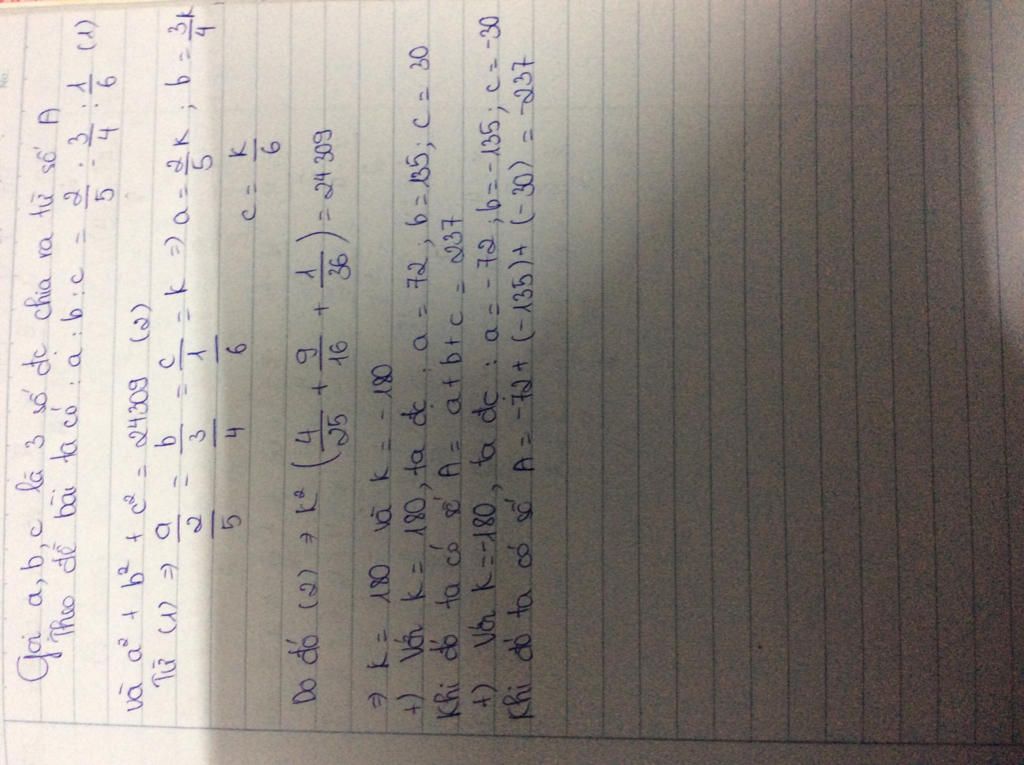 Gọi a, b, c là 3 số đc chia ra từ số A
Theo đề bài ta có : a : b : c = 2/5 : 3/4 : 1/6 (1)
và a² + b² + c² = 24309 (2)
Từ (1) => a/(2/5) = b/(3/4) = c/(1/6) = k => a = 2/5 k ; b = 3k/4
c = k/6
Do đó (2) => k² (4/25 + 9/16 + 1/36) = 24309
=> k = 180 và k = -180
+) Với k = 180, ta đc : a = 72, b = 135; c = 30
Khi đó ta có số A = a + b + c = 237
+) Với k = -180, ta đc : a = -72, b = -135; c = -30
Khi đó ta có số A = -72 + (-135) + (-30) = -237